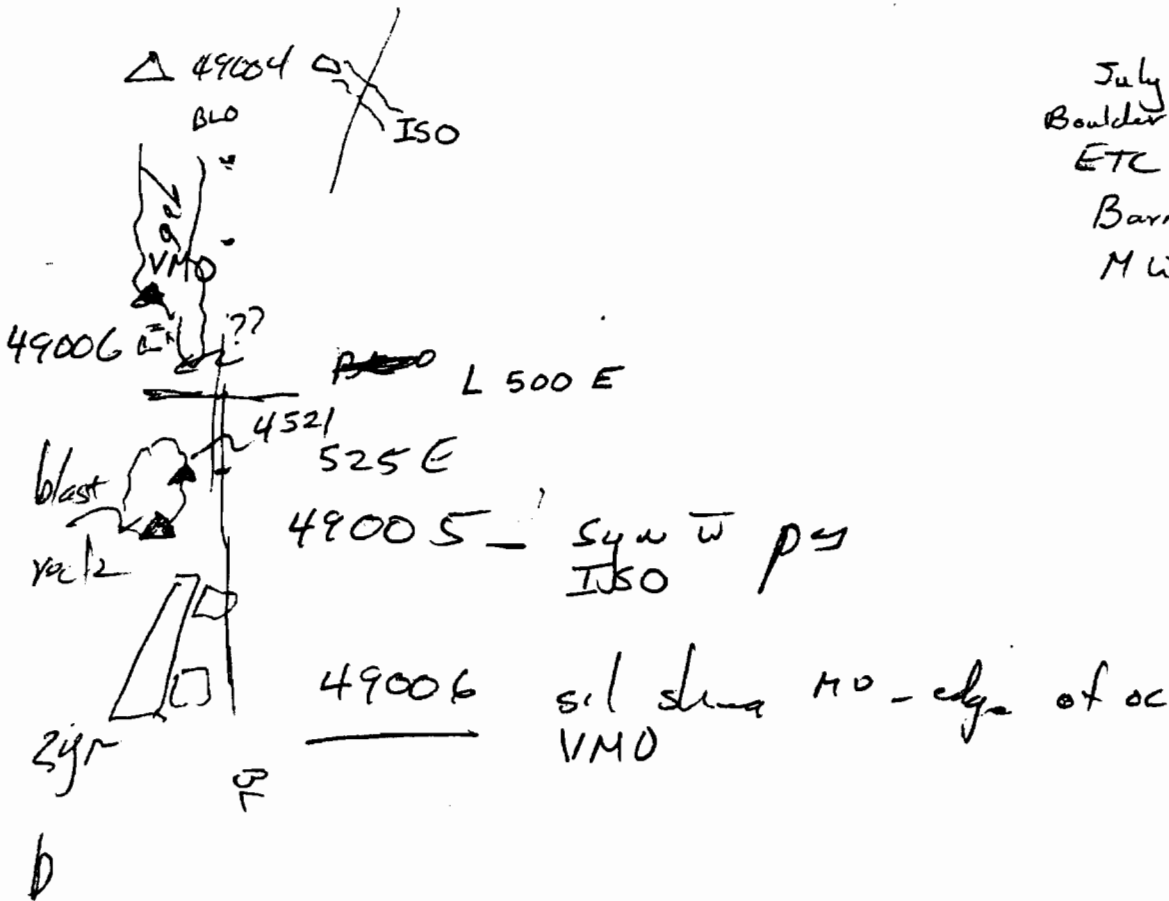 49004
BLO
ISO
July
Boulder
ETC
Barn
M W
VMO
49006
??
L 500 E
4521
525 E
blast
rock
49005 - Syn w̅ py
ISO
49006 sil MO - edge of oc
VMO
BL
b